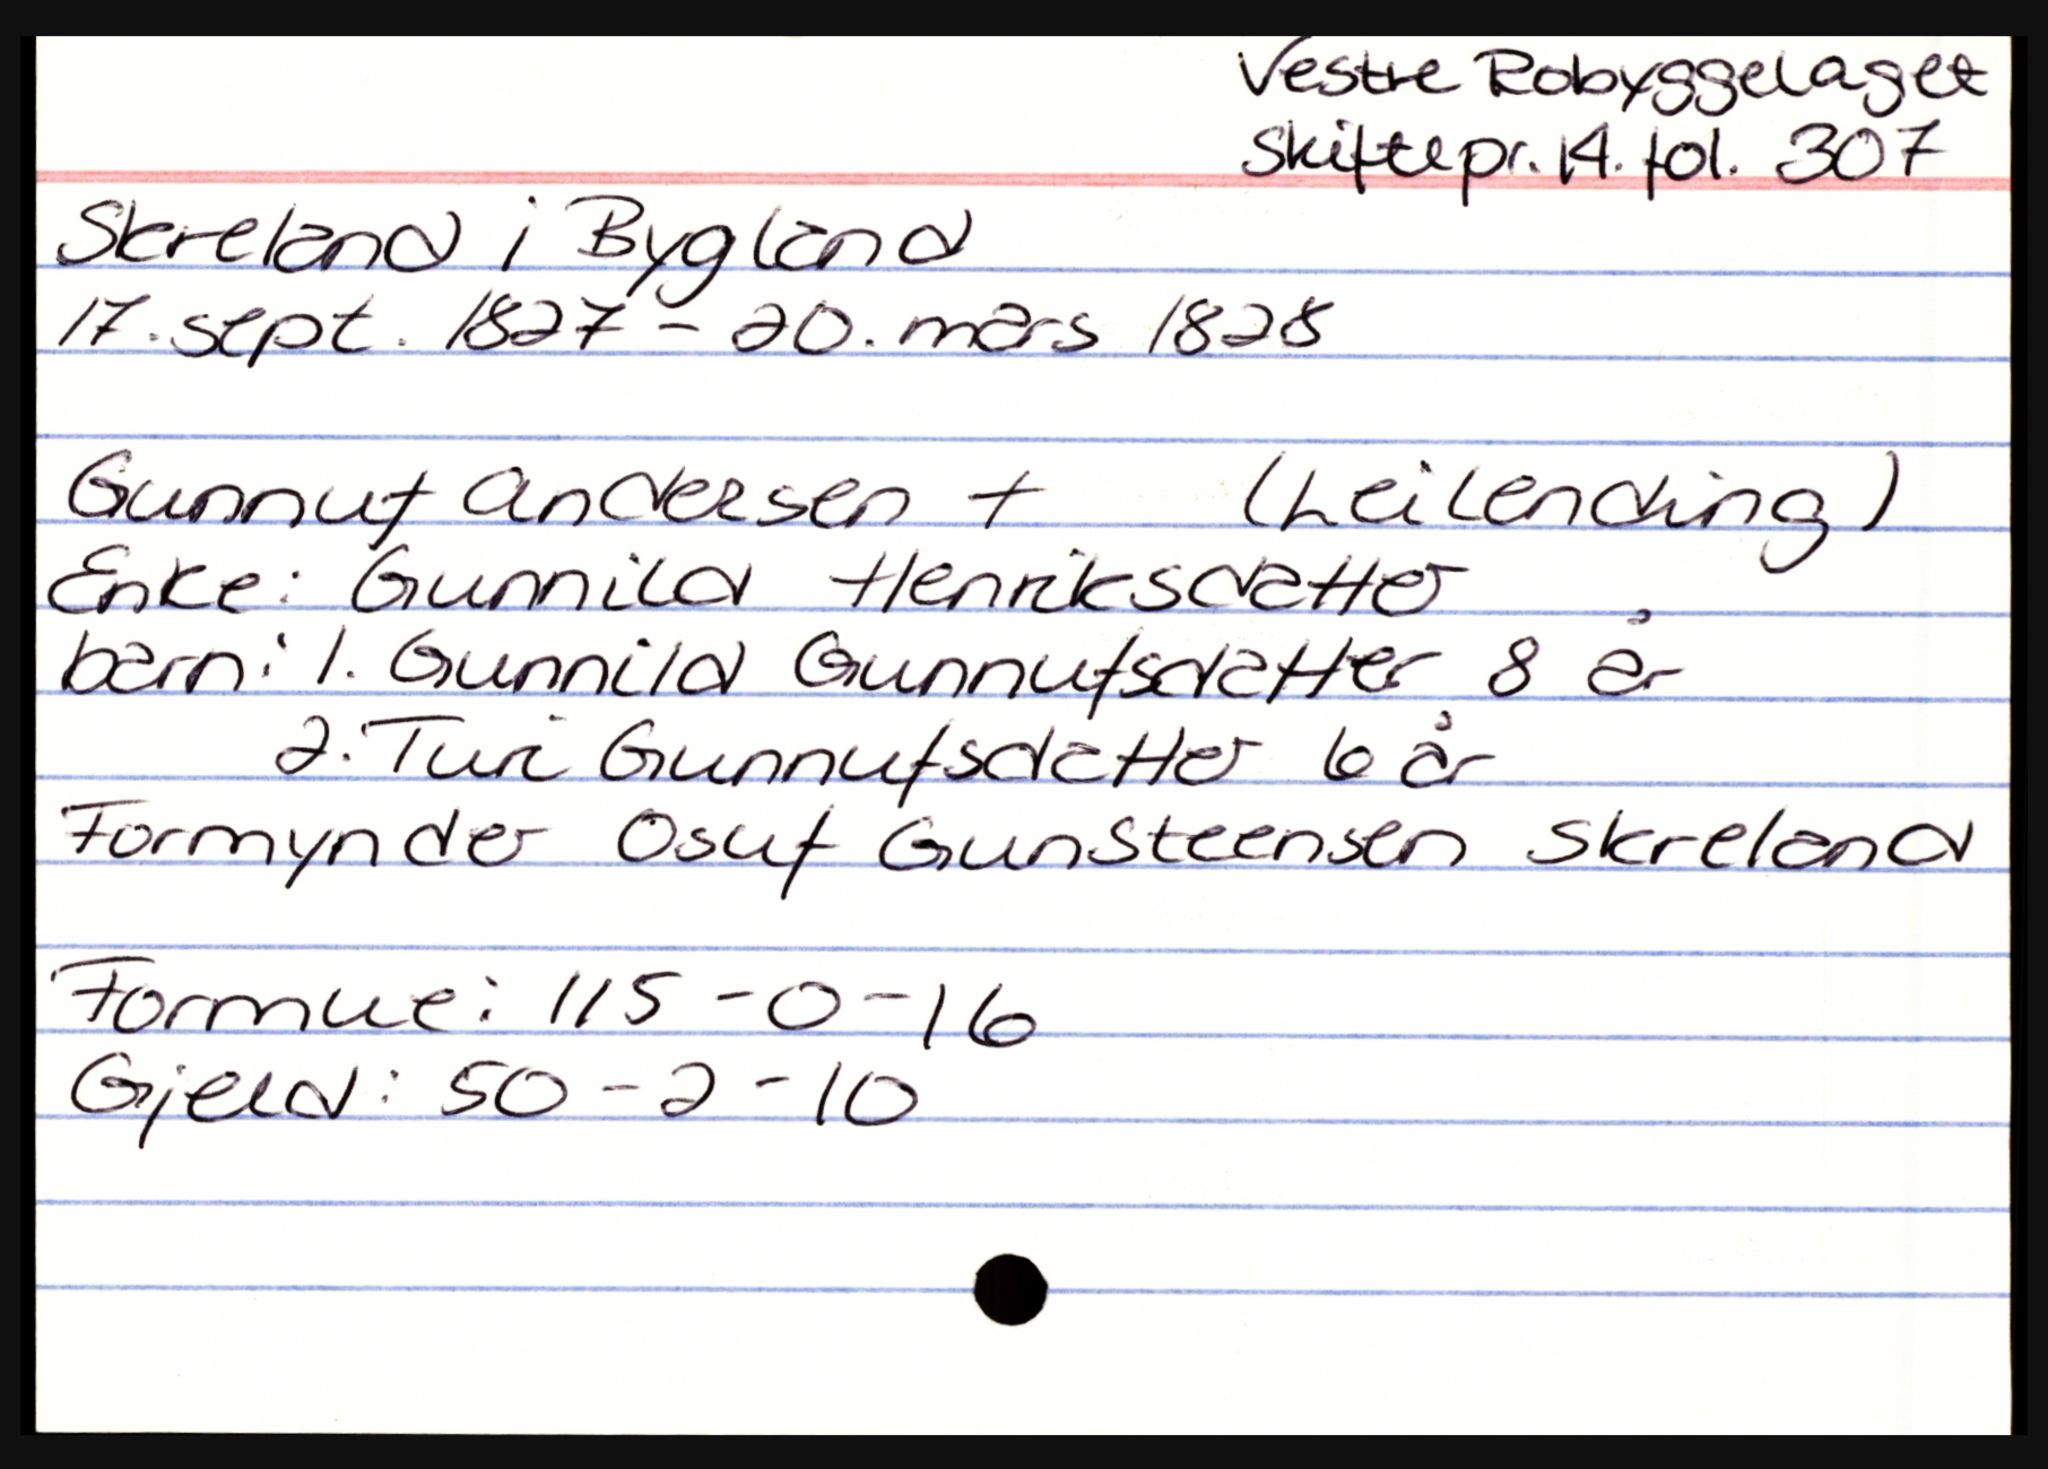 Vestre Robyggelaget
Skiftepr. 14. fol. 307
Skreland i Bygland
17. sept. 1827 - 20. mars 1828
Gunnuf Andersen + (Leilending)
Enke: Gunnild Henriksdatter
barn: 1. Gunnild Gunnufsdatter 8 år
2. Turi Gunnufsdatter 6 år
Formynder Osuf Gunsteensen Skreland
Formue: 115 - 0 - 16
Gjeld: 50 - 2 - 10